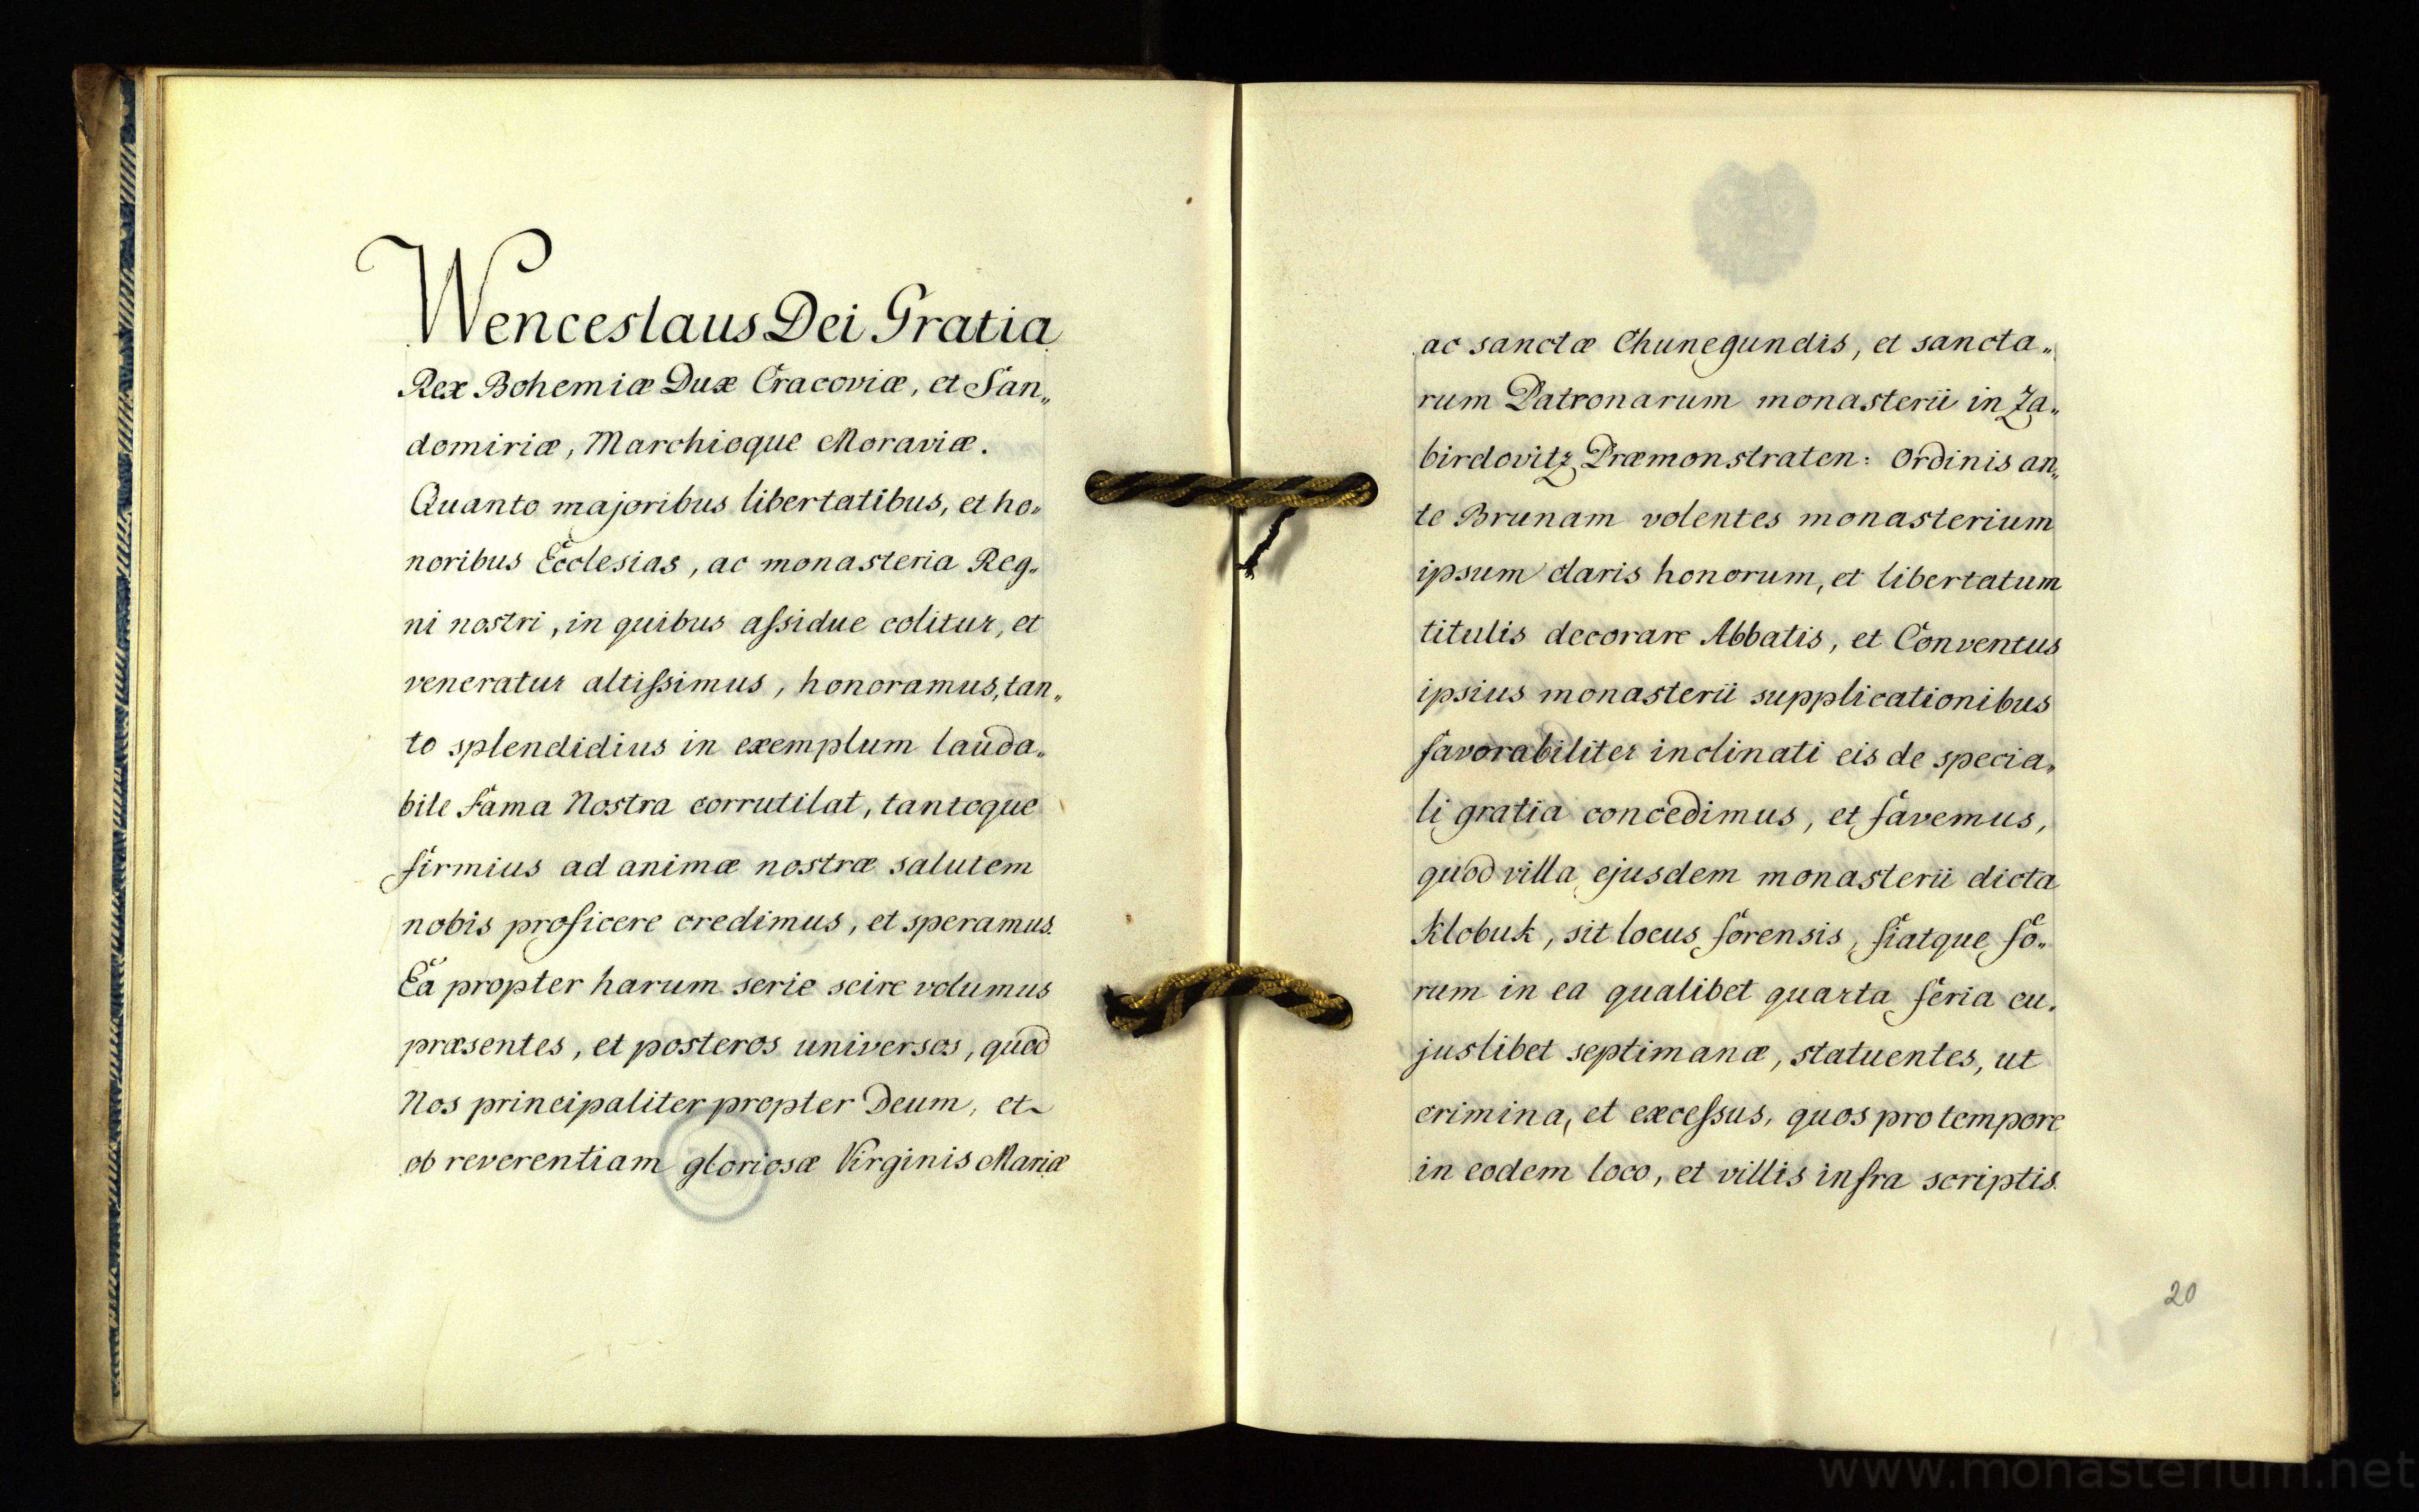 Wenceslaus Dei Gratia
Rex Bohemiæ Dux Cracoviæ, et San„
domiriæ, Marchioque Moraviæ.
Quanto majoribus libertatibus, et ho„
noribus Ecclesias, ac monasteria Reg„
ni nostri, in quibus aſsidue colitur, et
veneratur altiſsimus, honoramus, tan„
to splendidius in exemplum lauda„
bile fama Nostra corrutilat, tantoque
firmius ad animæ nostræ salutem
nobis proficere credimus, et speramus.
Ea propter harum serie scire volumus
præsentes, et posteros universos, quod
Nos principaliter propter Deum, et
ob reverentiam gloriosæ Virginis Mariæ
ac sanctæ Chunegundis, et sancta„
rum Patronarum monasterii in Za„
birdovitz Præmonstraten: Ordinis an„
te Brunam volentes monasterium
ipsum claris honorum, et libertatum
titulis decorare Abbatis, et Conventus
ipsius monasterii supplicationibus
favorabiliter inclinati eis de specia„
li gratia concedimus, et favemus,
quod villa ejusdem monasterii dicta
Klobuk, sit locus forensis, fiatque fo„
rum in ea qualibet quarta feria cu„
juslibet septimanæ, statuentes, ut
crimina, et exceſsus, quos pro tempore
in eodem loco, et villis infra scriptis
20
www.monasterium.net